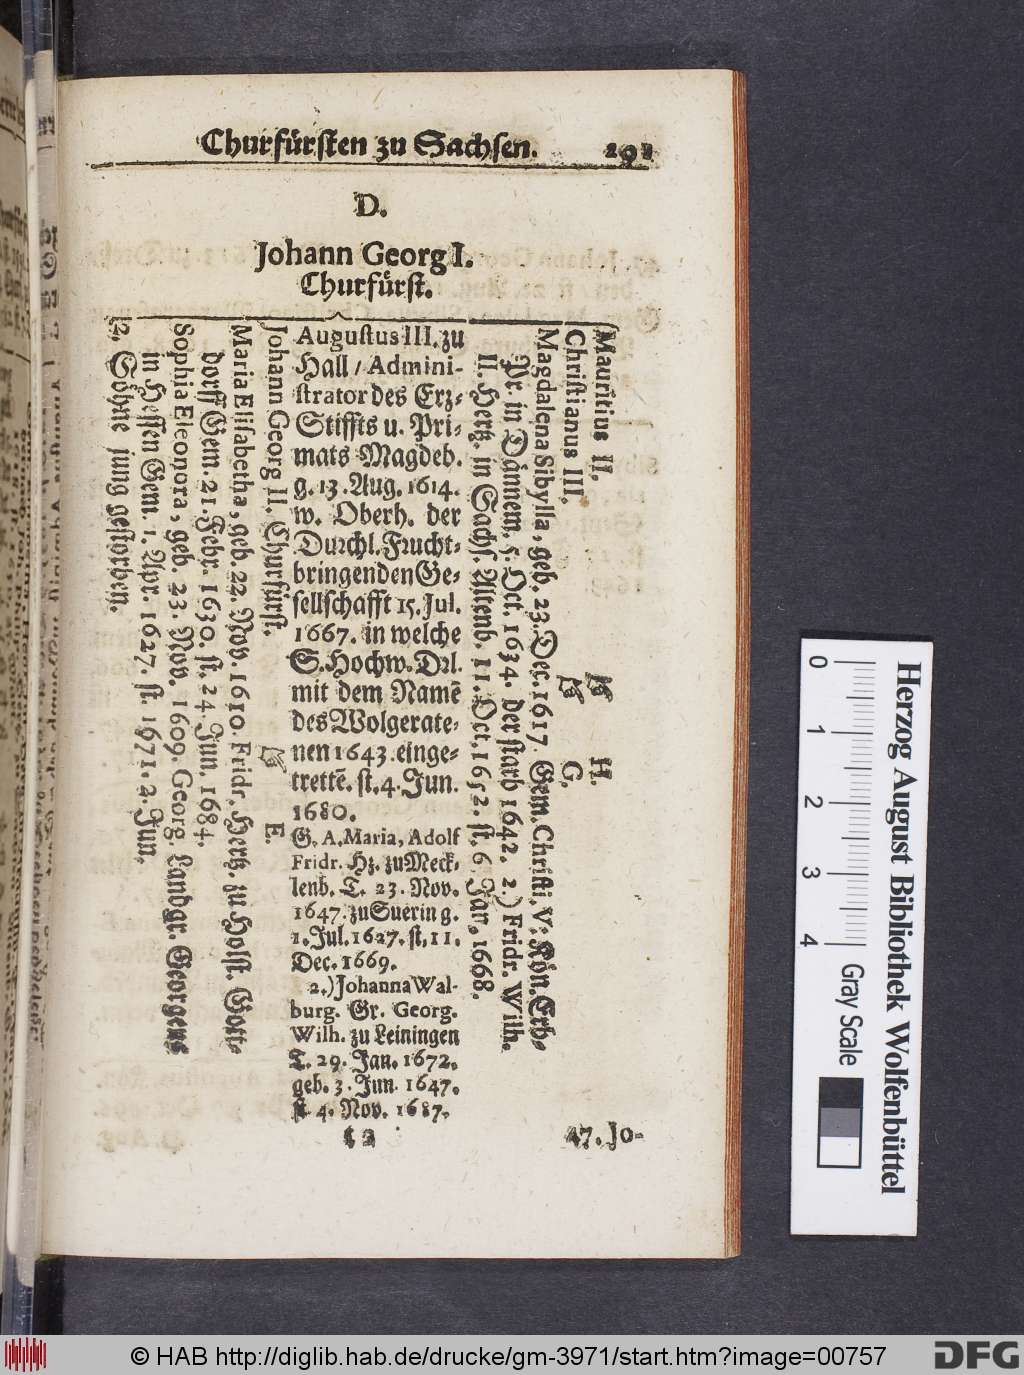 Churfürsten zu Sachsen. 191
D.
Johann Georg I.
Churfürst.
12. Söhne jung gestorben.
Sophia Eleonora, geb. 23. Nov. 1609. Georg. Landgr. Georgens
in Hessen Gem. 1. Apr. 1627. st. 1671. 2. Jun.
Maria Elisabetha, geb. 22. Nov. 1610. Fridr. Hertz. zu Holst. Gott-
dorff Gem. 21. Febr. 1630. st. 24. Jun. 1684.
Johann Georg II. Churfürst. ☞ E.
Augustus III. zu
Hall / Admini-
strator des Erz-
Stiffts u. Pri-
mats Magdeb.
g. 13. Aug. 1614.
w. Oberh. der
Durchl. Frucht-
bringenden Ge-
sellschafft 15. Jul.
1667. in welche
S. Hochw. Drl.
mit dem Namẽ
des Wolgerate-
nen 1643. einge-
trettẽ. st. 4. Jun.
1680.
G. A. Maria, Adolf
Fridr. Hz. zu Meck-
lenb. T. 23. Nov.
1647. zu Suerin g.
1. Jul. 1627. st. 11.
Dec. 1669.
2.) Johanna Wal-
burg. Gr. Georg.
Wilh. zu Leiningen
T. 29. Jan. 1672.
geb. 3. Jun. 1647.
st 4. Nov. 1687.
Magdalena Sibylla, geb. 23. Dec. 1617. Gem. Christi. V. Kön. Erb-
Pr. in Dännem. 5. Oct. 1634. der starb 1642. 2.) Fridr. Wilh.
II. Hertz. in Sachs. Altenb. 11. Oct. 1652. st. 6. Jan. 1668.
Christianus III. ☞ G.
Mauritius II. ☞ H.
t 2 47. Jo-
Herzog August Bibliothek Wolfenbüttel
0 1 2 3 4 Gray Scale
© HAB http://diglib.hab.de/drucke/gm-3971/start.htm?image=00757
DFG